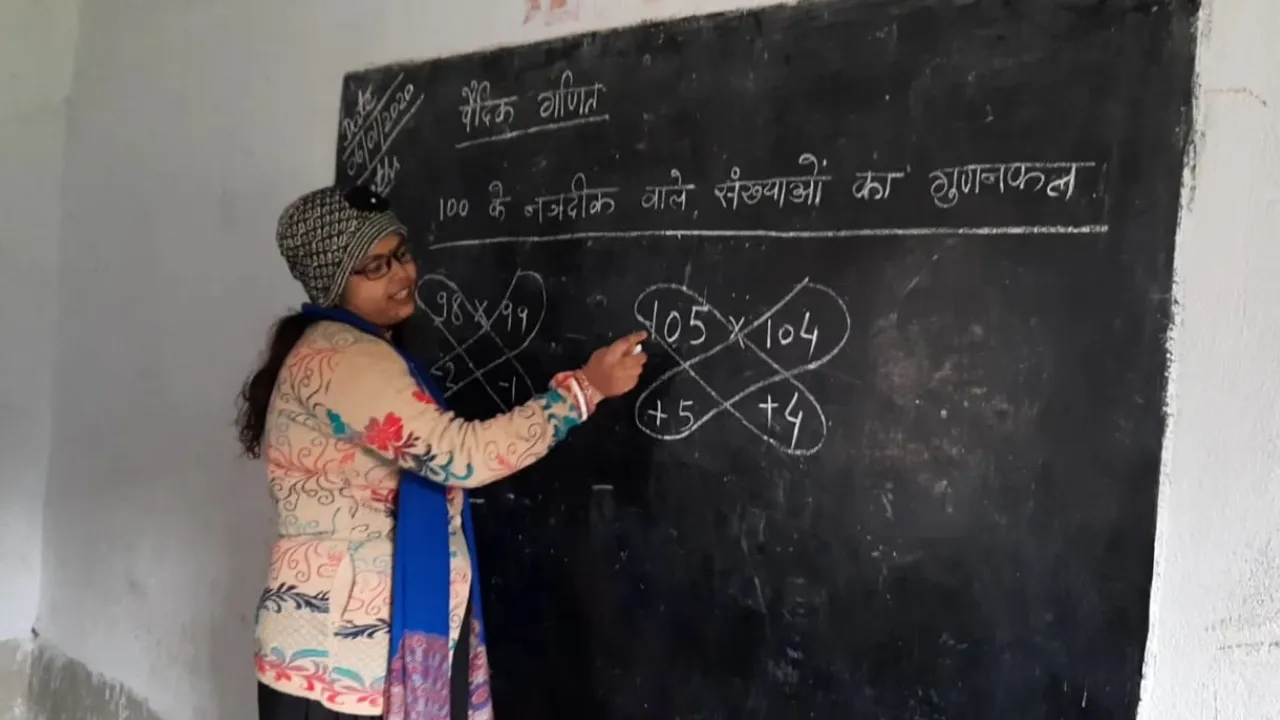 Date
06/01/2020
वैदिक गणित
100 के नजदीक वाले संख्याओं का गुणनफल
98 x 99
-2 -1
105 x 104
+5 +4